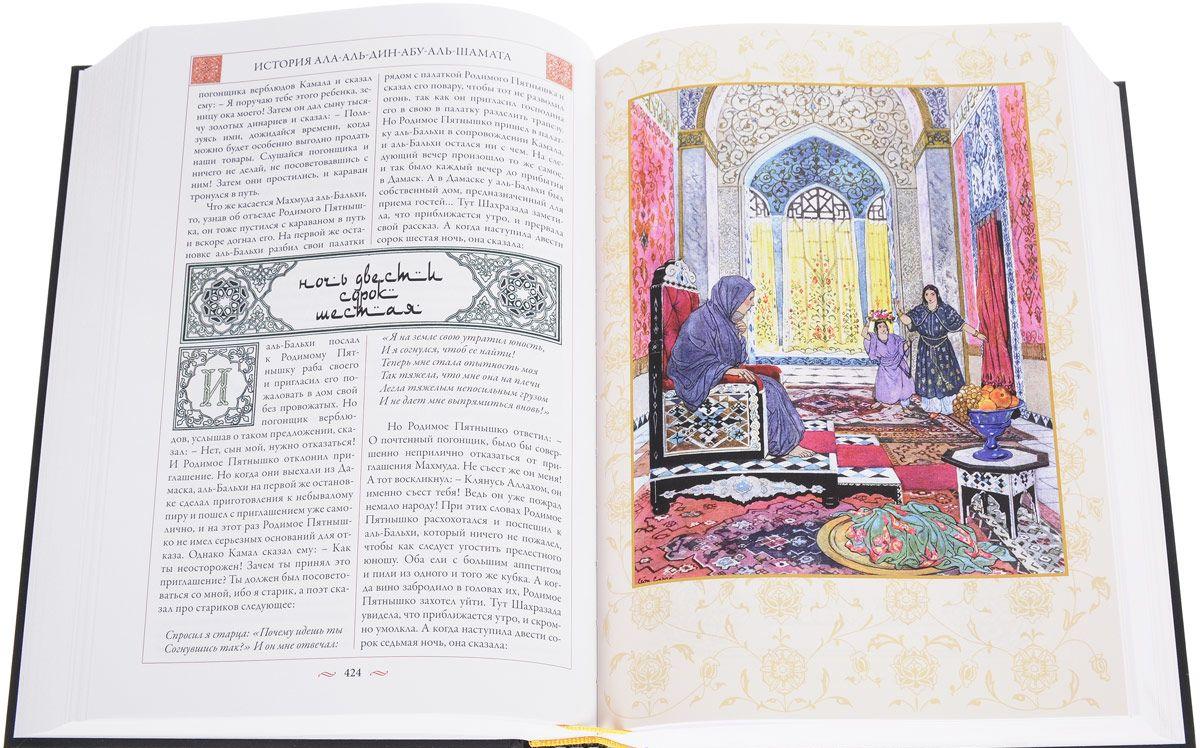 ИСТОРИЯ АЛА-АЛЬ-ДИН-АБУ-АЛЬ-ШАМАТА
погонщика верблюдов Камала и сказал
ему: – Я поручаю тебе этого ребенка, зе-
ницу ока моего! Затем он дал сыну тыся-
чу золотых динариев и сказал: – Поль-
зуясь ими, дожидайся времени, когда
можно будет особенно выгодно продать
наши товары. Слушайся погонщика и
ничего не делай, не посоветовавшись с
ним! Затем они простились, и караван
тронулся в путь.
Что же касается Махмуда аль-Бальхи,
то, узнав об отъезде Родимого Пятныш-
ка, он тоже пустился с караваном в путь
и вскоре догнал его. На первой же оста-
новке аль-Бальхи разбил свои палатки
рядом с палаткой Родимого Пятнышка и
сказал его повару, чтобы тот не разводил
огонь, так как он пригласил господина
его в свою в палатку разделить трапезу.
Но Родимое Пятнышко пришел в палат-
ку аль-Бальхи в сопровождении Камала,
и аль-Бальхи остался ни с чем. На сле-
дующий вечер произошло то же самое,
и так было каждый вечер до прибытия
в Дамаск. А в Дамаске у аль-Бальхи был
собственный дом, предназначенный для
приема гостей... Тут Шахразада замети-
ла, что приближается утро, и прервала
свой рассказ. А когда наступила двести
сорок шестая ночь, она сказала:
ночь двести
сорок
шестая
И аль-Бальхи послал
к Родимому Пят-
нышку раба своего
и пригласил его по-
жаловать в дом свой
без провожатых. Но
погонщик верблю-
дов, услышав о таком предложении, ска-
зал: – Нет, сын мой, нужно отказаться!
И Родимое Пятнышко отклонил при-
глашение. Но когда они выехали из Да-
маска, аль-Бальхи на первой же останов-
ке сделал приготовления к небывалому
пиру и пошел с приглашением уже само-
лично, и на этот раз Родимое Пятныш-
ко не имел серьезных оснований для от-
каза. Однако Камал сказал ему: – Как
ты неосторожен! Зачем ты принял это
приглашение? Ты должен был посовето-
ваться со мной, ибо я старик, а поэт ска-
зал про стариков следующее:
Спросил я старца: «Почему идешь ты
Согнувшись так?» И он мне отвечал:
«Я на земле свою утратил юность,
И я согнулся, чтоб ее найти!
Теперь мне стала опытность моя
Так тяжела, что мне она на плечи
Легла тяжелым непосильным грузом
И не дает мне выпрямиться вновь!»
Но Родимое Пятнышко ответил: –
О почтенный погонщик, было бы совер-
шенно неприлично отказаться от при-
глашения Махмуда. Не съест же он меня!
А тот воскликнул: – Клянусь Аллахом, он
именно съест тебя! Ведь он уже пожрал
немало народу! При этих словах Родимое
Пятнышко расхохотался и поспешил к
аль-Бальхи, который ничего не пожалел,
чтобы как следует угостить прелестного
юношу. Оба ели с большим аппетитом
и пили из одного и того же кубка. А ког-
да вино забродило в головах их, Родимое
Пятнышко захотел уйти. Тут Шахразада
увидела, что приближается утро, и скром-
но умолкла. А когда наступила двести со-
рок седьмая ночь, она сказала:
424